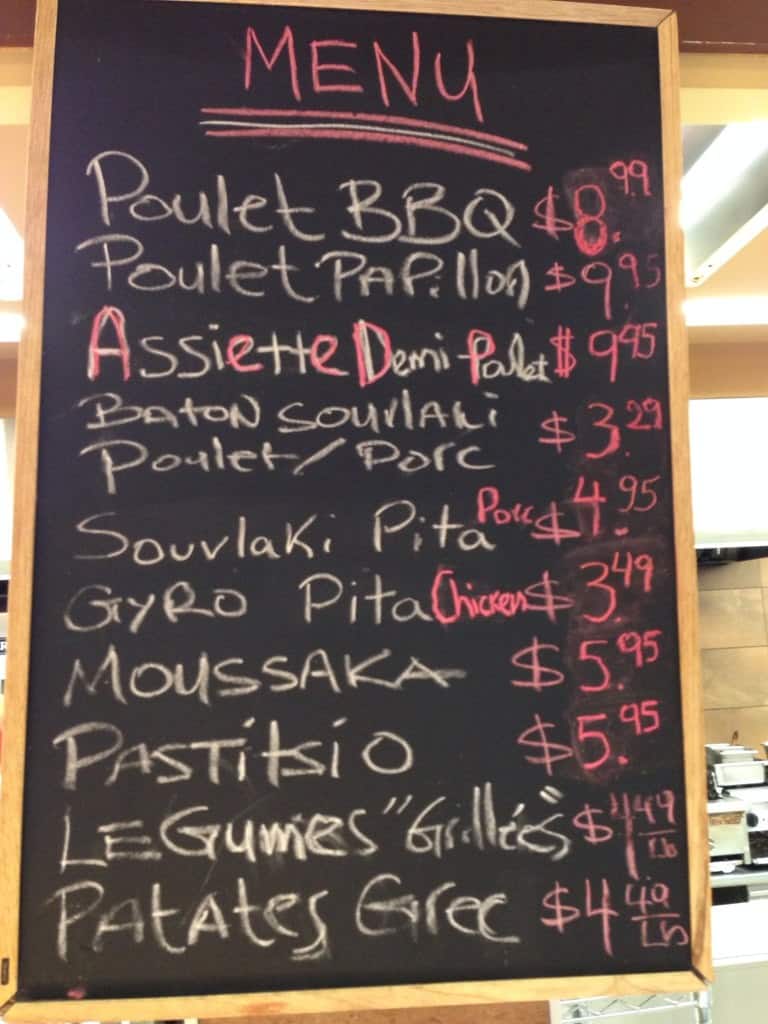 MENU
Poulet BBQ $8.99
Poulet PAPillon $9.95
Assiette Demi-Poulet $9.95
BATON SOUVLAKi $3.29
Poulet/Porc
Souvlaki Pita Porc $4.95
GYRO Pita Chicken $3.49
MOUSSAKA $5.95
PASTitsiO $5.95
LEGumes "Grillées" $4.49/Lb
PAtAtes Grec $4.49/Lb